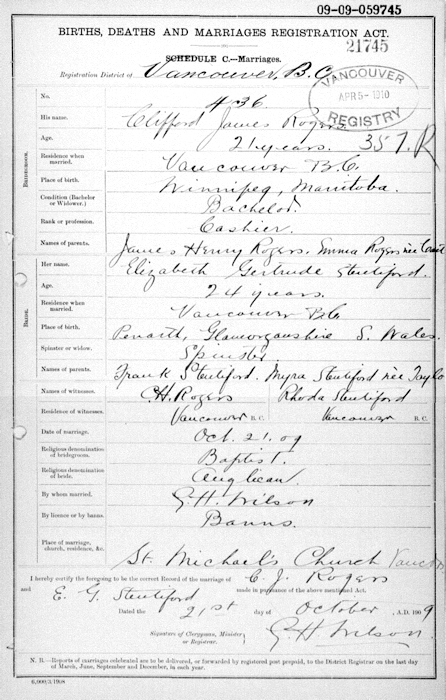 09-09-059745
BIRTHS, DEATHS AND MARRIAGES REGISTRATION ACT.
21745
SCHEDULE C.—Marriages.
Registration District of Vancouver, B.C.
VANCOUVER
APR 5 - 1910
REGISTRY
No. 436
357. R
BRIDEGROOM.
His name. Clifford James Rogers
Age. 21 years.
Residence when married. Vancouver B.C.
Place of birth. Winnipeg, Manitoba.
Condition (Bachelor or Widower.) Bachelor.
Rank or profession. Cashier.
Names of parents. James Henry Rogers. Emma Rogers née
BRIDE.
Her name. Elizabeth Gertrude Stentiford.
Age. 24 years.
Residence when married. Vancouver B.C.
Place of birth. Penarth, Glamorganshire S. Wales.
Spinster or widow. Spinster
Names of parents. Frank Stentiford. Myra Stentiford née Taylo
Names of witnesses. C.H. Rogers Rhoda Stentiford
Residence of witnesses. Vancouver B.C. Vancouver B.C.
Date of marriage. Oct. 21. 09
Religious denomination of bridegroom. Baptist.
Religious denomination of bride. Anglican.
By whom married. G.H. Wilson
By licence or by banns. Banns.
Place of marriage, church, residence, &c. St. Michael's Church
I hereby certify the foregoing to be the correct Record of the marriage of C. J. Rogers
and E. G. Stentiford made in pursuance of the above mentioned Act.
Dated the 21st day of October, A.D. 1909
Signature of Clergyman, Minister or Registrar. G H Wilson.
N. B.—Reports of marriages celebrated are to be delivered, or forwarded by registered post prepaid, to the District Registrar on the last day
of March, June, September and December, in each year.
6,000/3/1908